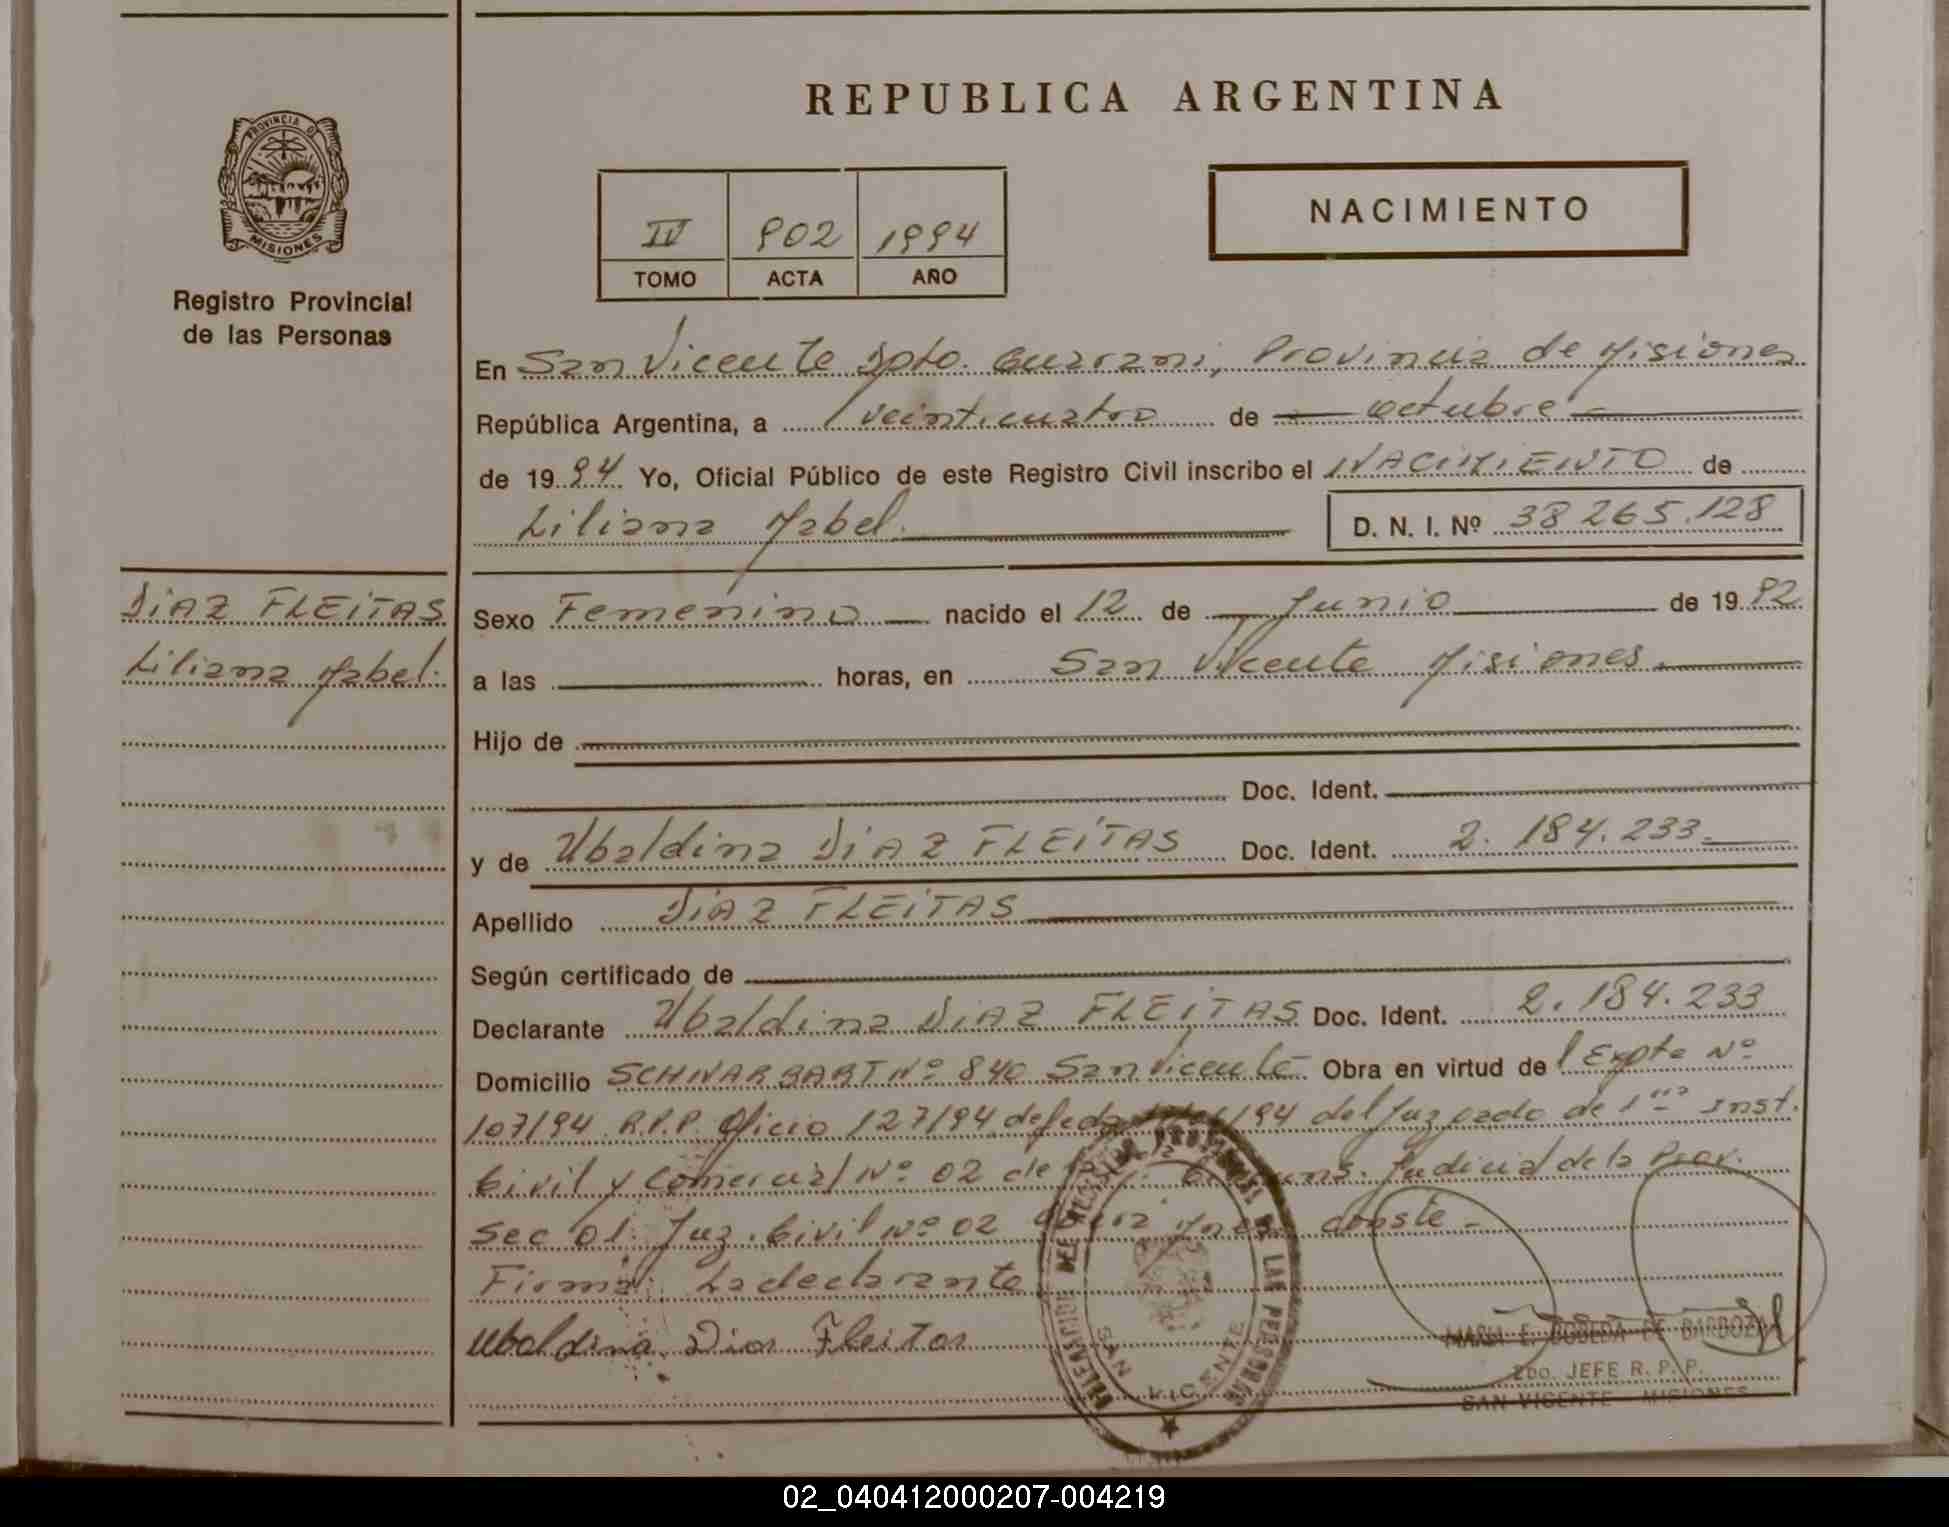 REPUBLICA ARGENTINA
PROVINCIA DE
MISIONES
Registro Provincial
de las Personas
IV 902 1994
TOMO ACTA AÑO
NACIMIENTO
En San Vicente Dpto. Guarani, Provincia de Misiones
República Argentina, a veinticuatro de octubre
de 1994 Yo, Oficial Público de este Registro Civil inscribo el NACIMIENTO de
Liliana Mabel. D. N. I. Nº 38 265.128
DIAZ FLEITAS
Liliana Mabel.
Sexo Femenino nacido el 12 de Junio de 1982
a las horas, en San Vicente Misiones
Hijo de
Doc. Ident.
y de Ubaldina DIAZ FLEITAS Doc. Ident. 2. 184.233
Apellido DIAZ FLEITAS
Según certificado de
Declarante Ubaldina DIAZ FLEITAS Doc. Ident. 2. 184. 233
Domicilio Nº 840 San Vicente Obra en virtud de l Expte Nº
107/94 R.P.P. Oficio 127/94 de fecha /94 del Juzgado de 1ra Inst.
Civil y Comercial Nº 02 de Judicial de la Prov.
Sec 01. Juz. Civil Nº 02 conste -
Firma: La declarante
Ubaldina Dias Fleitas
DELEGACION DEL REGISTRO PROVINCIAL DE LAS PERSONAS
SAN VICENTE
MARIA E. DE BARBOZA
2DO. JEFE R. P. P.
SAN VICENTE - MISIONES
02_040412000207-004219